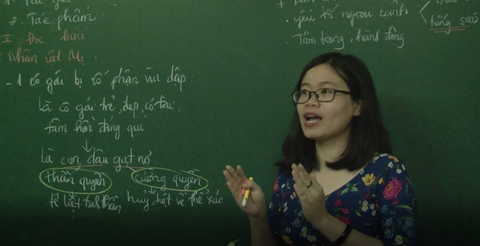 2. Tác phẩm
II Đọc hiểu
Nhân vật Mị
- 1 cô gái bị số phận vùi dập:
là cô gái trẻ, đẹp, có tài,
tâm hồn đáng quí
↓
là con dâu gạt nợ
thần quyền cường quyền
tê liệt tinh thần huỷ hoại về thể xác
yếu tố ngoại cảnh
tiếng sáo
Tâm trạng, hành động